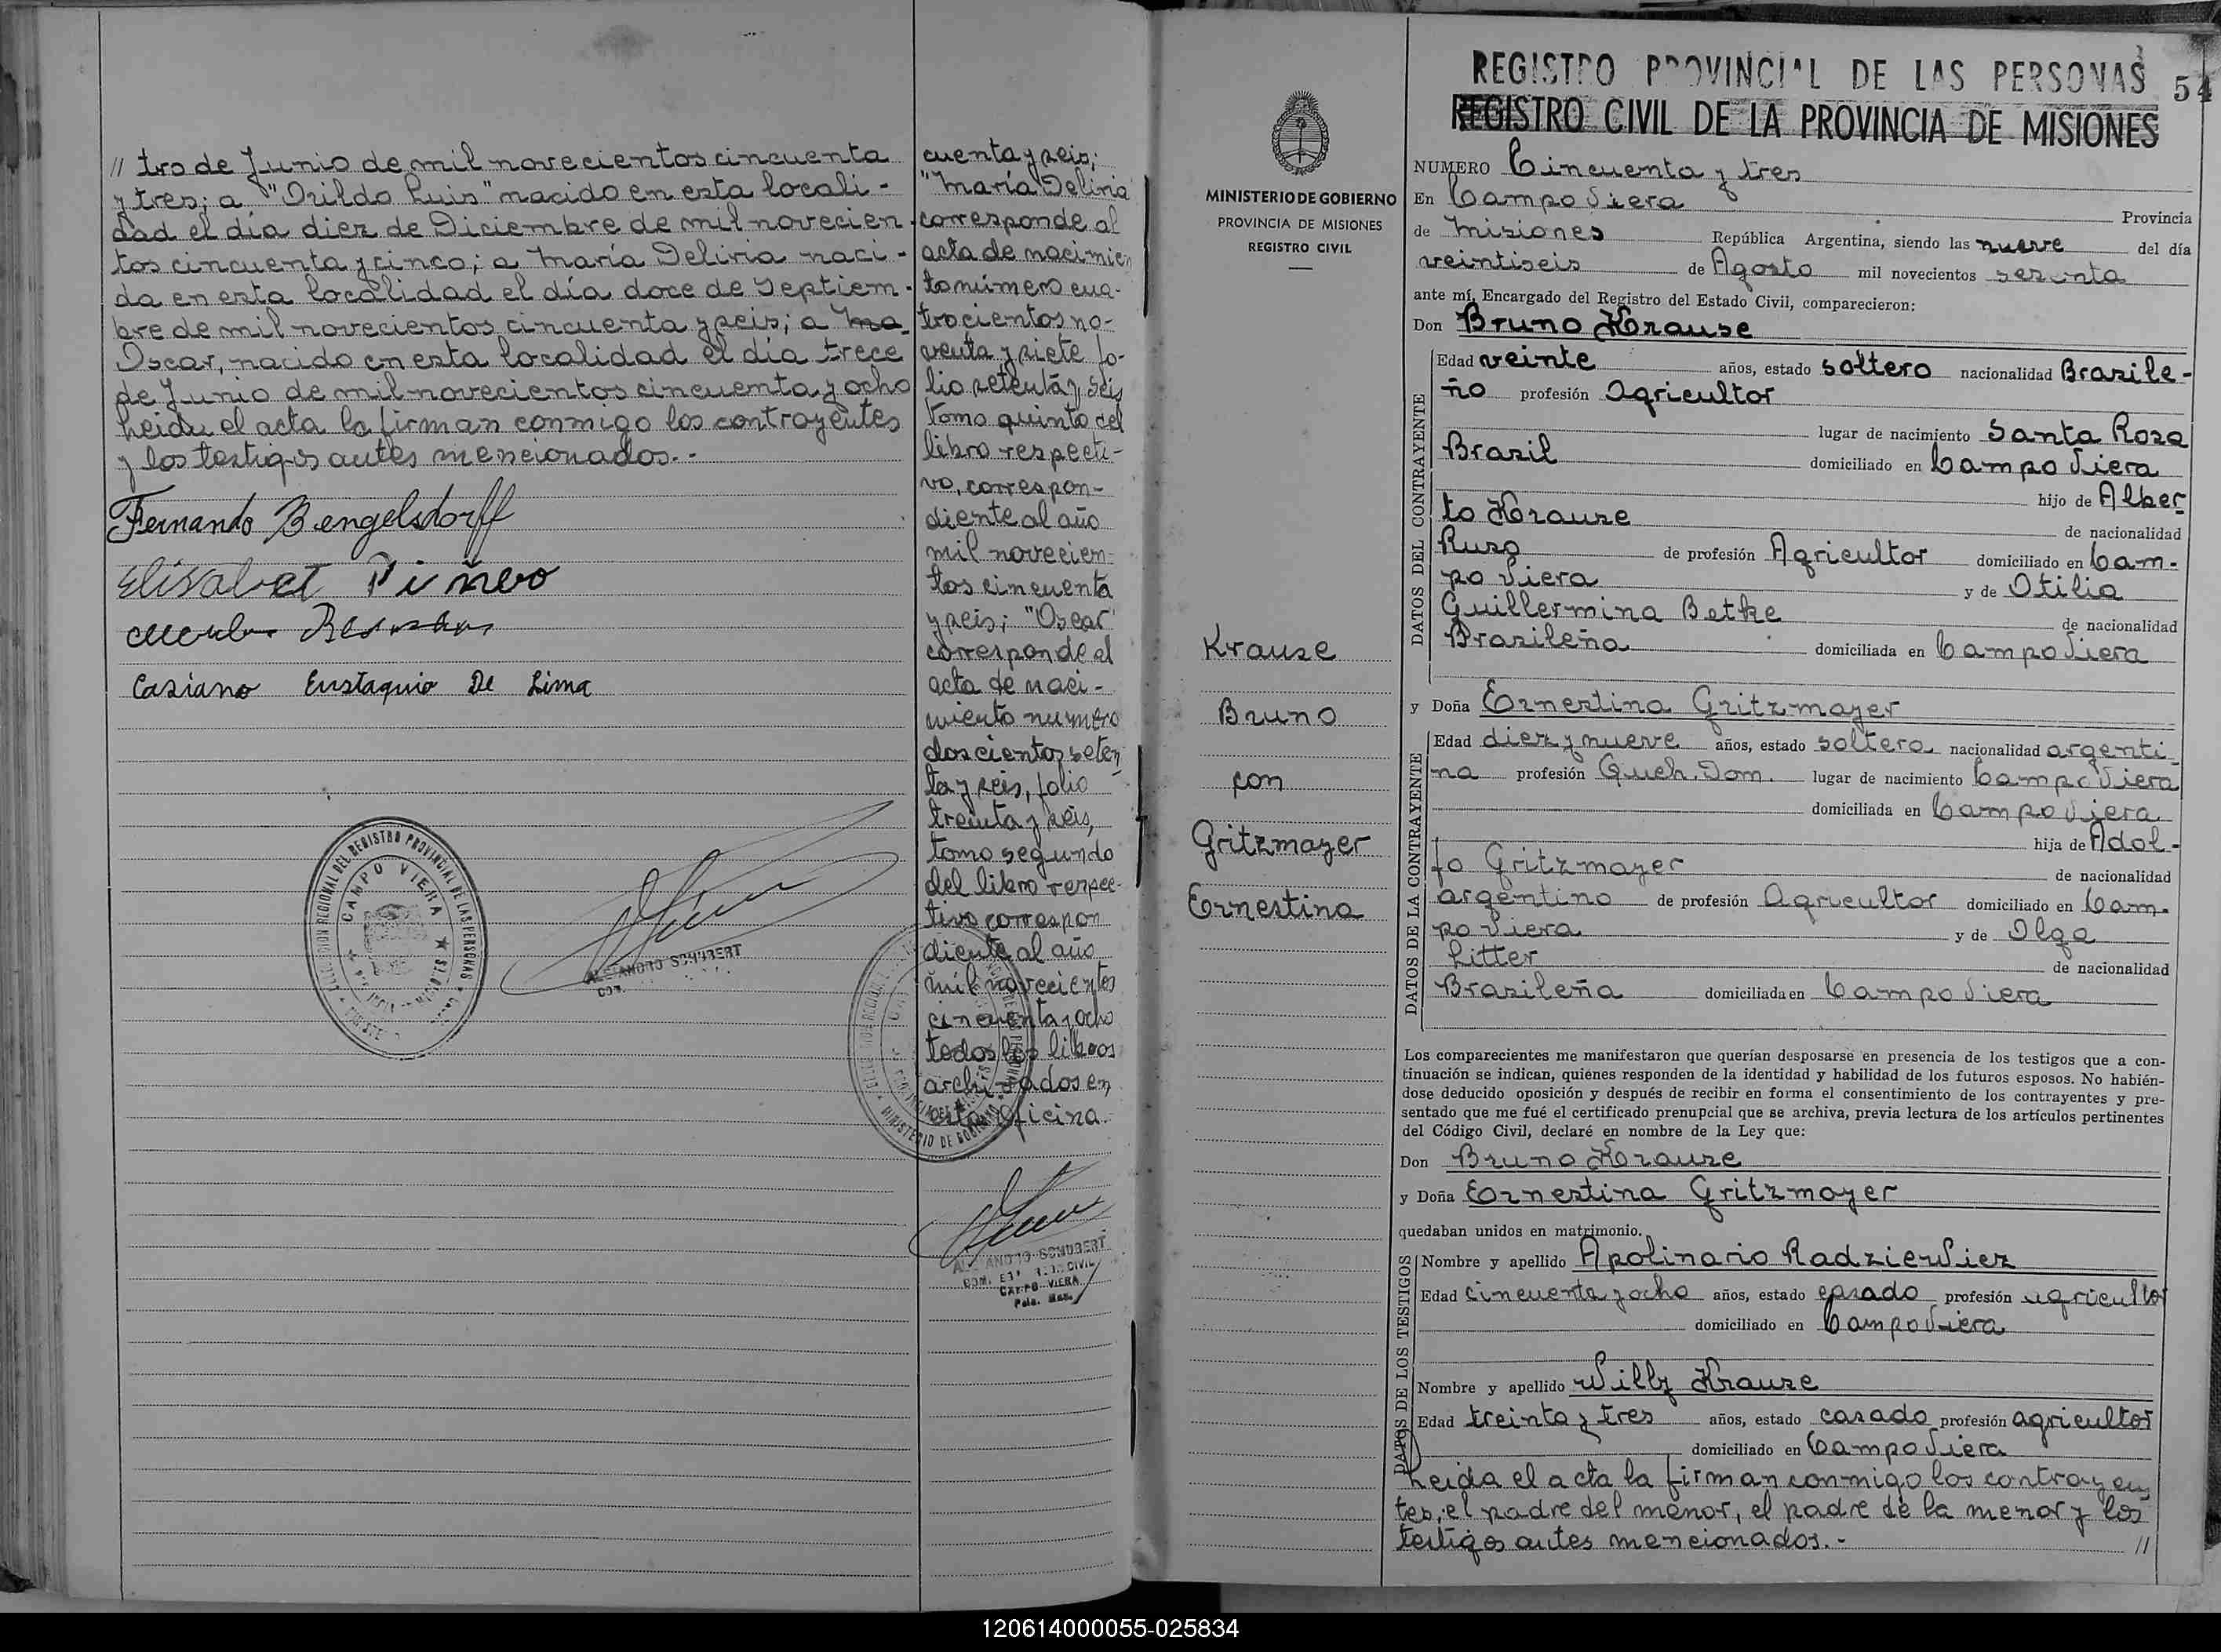 // tro de Junio de mil novecientos cincuenta
y tres; a "Ovildo Luis" nacido en esta locali-
dad el día diez de Diciembre de mil novecien-
tos cincuenta y cinco; a María Deliria naci-
da en esta localidad el día doce de Septiem-
bre de mil novecientos cincuenta y seis; a
Oscar, nacido en esta localidad el día trece
de Junio de mil novecientos cincuenta y ocho
Leida el acta la firman conmigo los contrayentes
y los testigos antes mencionados.-
Fernando Bengelsdorff
Elisabet
Casiano Eustaquio De Lima
DELEGACION REGIONAL DEL REGISTRO PROVINCIAL DE LAS PERSONAS
CAMPO VIERA
MISIONES
ALEJANDRO SCHUBERT
COM.
cuenta y seis;
"María Deliria
corresponde al
acta de nacimien
to número cua-
trocientos no-
venta y siete fo-
lio setenta y seis
tomo quinto del
libro respecti-
vo, correspon-
diente al año
mil novecien-
tos cincuenta
y seis; "Oscar"
corresponde el
acta de naci-
miento numero
doscientos seten
ta y seis, folio
treinta y seis,
tomo segundo
del libro respec-
tivo correspon
diente al año
mil novecientos
cincuenta y ocho
todos los libros
archivados en
esta oficina.
MINISTERIO DE GOBIERNO
ALEJANDRO SCHUBERT
CAMPO VIERA
MINISTERIO DE GOBIERNO
PROVINCIA DE MISIONES
REGISTRO CIVIL
Krause
Bruno
con
Gritzmayer
Ernestina
REGISTRO PROVINCIAL DE LAS PERSONAS 54
REGISTRO CIVIL DE LA PROVINCIA DE MISIONES
NUMERO Cincuenta y tres
En Campo Viera Provincia
de Misiones República Argentina, siendo las nueve del día
veintiseis de Agosto mil novecientos sesenta
ante mí, Encargado del Registro del Estado Civil, comparecieron:
Don Bruno Krause
DATOS DEL CONTRAYENTE
Edad veinte años, estado soltero nacionalidad Brasile-
ño profesión Agricultor
lugar de nacimiento Santa Rosa
Brasil domiciliado en Campo Viera
hijo de Alber
to Krause de nacionalidad
Ruso de profesión Agricultor domiciliado en Cam-
po Viera y de Otilia
Guillermina Betke de nacionalidad
Brasileña domiciliada en Campo Viera
y Doña Ernestina Gritzmayer
DATOS DE LA CONTRAYENTE
Edad diez y nueve años, estado soltera nacionalidad argenti-
na profesión Queh. Dom. lugar de nacimiento Campo Viera
domiciliada en Campo Viera
hija de Adol-
fo Gritzmayer de nacionalidad
argentino de profesión Agricultor domiciliado en Cam-
po Viera y de Olga
Litter de nacionalidad
Brasileña domiciliada en Campo Viera
Los comparecientes me manifestaron que querían desposarse en presencia de los testigos que a con-
tinuación se indican, quienes responden de la identidad y habilidad de los futuros esposos. No habién-
dose deducido oposición y después de recibir en forma el consentimiento de los contrayentes y pre-
sentado que me fué el certificado prenupcial que se archiva, previa lectura de los artículos pertinentes
del Código Civil, declaré en nombre de la Ley que:
Don Bruno Krause
y Doña Ernestina Gritzmayer
quedaban unidos en matrimonio.
DATOS DE LOS TESTIGOS
Nombre y apellido Apolinario Radziewiez
Edad cincuenta y ocho años, estado casado profesión agricultor
domiciliado en Campo Viera
Nombre y apellido Willy Krause
Edad treinta y tres años, estado casado profesión agricultor
domiciliado en Campo Viera
Leida el acta la firman conmigo los contrayen
tes, el padre del menor, el padre de la menor y los
testigos antes mencionados.- //
120614000055-025834